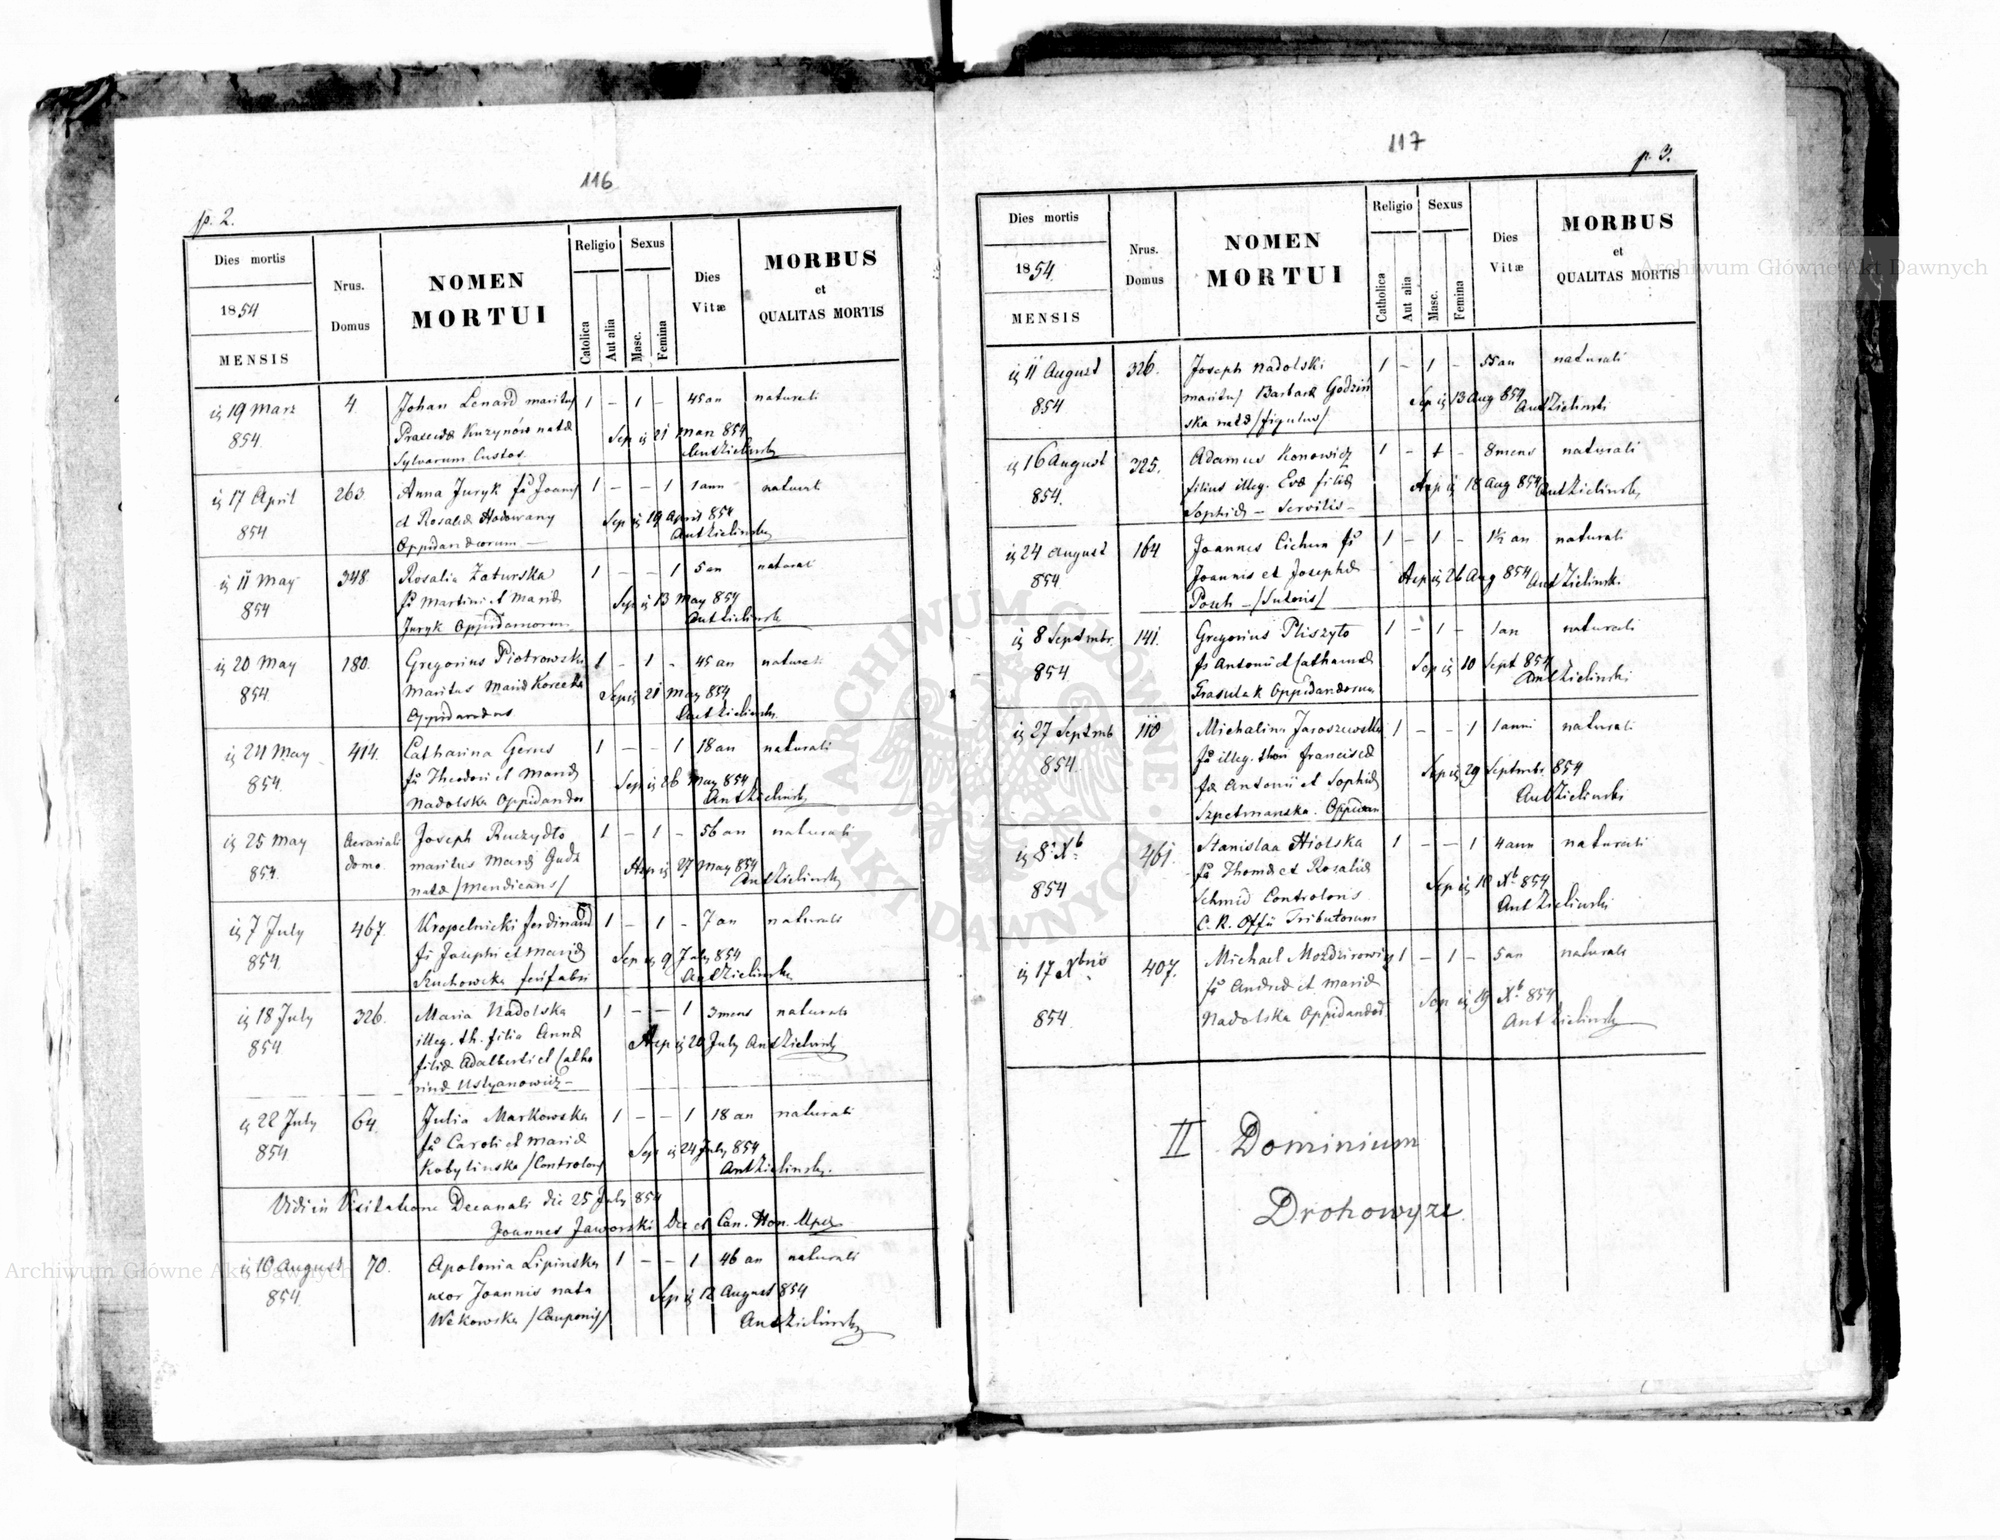 116
p. 2.
Dies mortis
Nrus.
Domus
NOMEN
MORTUI
Religio
Sexus
Dies
Vitæ
MORBUS
et
QUALITAS MORTIS
1854
MENSIS
Catolica
Aut alia
Masc.
Femina
19 Marz 4. Johan Lenard maritus 1 – 1 – 45 an naturali
854. natæ Sep 21 Marz 854
Sylvarum Custos AntZielinski
17 April 263. Anna Juryk fa Joannis 1 – – 1 1 ann naturali
854 et Rosaliæ Hodowany Sep 19 April 854
Oppidandorum AntZielinski
11 May 348. Rosalia Zaturska 1 – – 1 5 an naturali
854 fa Martini et Mariæ Sep 13 May 854
Juryk Oppidanorum AntZielinski
20 May 180. Gregorius Piotrowski 1 – 1 – 45 an naturali
854. Maritus Mariæ Korecka Sep 21 May 854
AntZielinski
24 May 414. Catharina Gerus 1 – – 1 18 an naturali
854. fa Theodori et Mariæ Sep 26 May 854
Nadolska Oppidandos AntZielinski
25 May Aerariali Joseph Ruczydło 1 – 1 – 56 an naturali
854. domo. maritus Mariæ Gudz Sep 27 May 854
natæ /mendicans/ AntZielinski
7 July 467. Kropelnicki Ferdinand 1 – 1 – 7 an naturali
854. fs Josephi et Mariæ Sep 9 July 854
Suchowska AntZielinski
18 July 326. Maria Nadolska 1 – – 1 3 mens naturali
854 illeg. th. filia Annæ Sep 20 July AntZielinski
filiæ Adalberti et Catha
rinæ Ustyanowicz –
22 July 64. Julia Markowska 1 – – 1 18 an naturali
854. fa Caroli et Mariæ Sep 24 July 854
Kobylinska /Controlors AntZielinski.
Vidi in Visitatione Decanali die 25 July 854
Joannes Jaworski Dec et Can. Hon.
10 August 70. Apolonia Lipinska 1 – – 1 46 an naturali
854. uxor Joannis nata Sep 12 August 854
Wekowska /Cauponis/ AntZielinski
117
p. 3.
Dies mortis
Nrus.
Domus
NOMEN
MORTUI
Religio
Sexus
Dies
Vitæ
MORBUS
et
QUALITAS MORTIS
1854.
MENSIS
Catholica
Aut alia
Masc.
Femina
11 August 326. Joseph Nadolski 1 – 1 – 55 an naturali
854 maritus Barbaræ Godziń Sep 13 Aug 854 AntZielinski
ska natæ /figulus/
16 August 325. Adamus Konowicz 1 – 1 – 8 mens naturali
854. filius illeg. Evæ filiæ Sep 18 Aug 854 AntZielinski
Sophiæ – Servilis –
24 August 164 Joannes Cichun fs 1 – 1 – 1½ an naturali
854. Joannis et Josephæ Sep 26 Aug 854 AntZielinsk.
/Sutoris/
8 Septmbr. 141. Gregorius Pliszyło 1 – 1 – 1 an naturali
854. fs Antonii et Catharinæ Sep 10 Sept 854
Grasulak Oppidandorum AntZielinski
27 Septmb 118 Michalina Jaroszewska 1 – – 1 1 anni naturali
854. fa illeg. thori Franciscæ Sep 29 Septmbr 854
fæ Antonii et Sophiæ AntZielinski
Szpetmanska. Oppidan
8 Xb 461. Stanislaa Hiolska 1 – – 1 4 ann naturali
854 fa Thomæ et Rosaliæ Sep 10 Xb 854
Schmid Controloris AntZielinski
C. R. Offii Tributorum
17 Xbris 407. Michael Mozdzirowicz 1 – 1 – 5 an naturali
854. fs Andreæ et Mariæ Sep 19 Xb 854
Nadolska Oppidandos AntZielinski
II Dominium
Drohowyze.
ARCHIWUM GŁÓWNE AKT DAWNYCH
Archiwum Główne Akt Dawnych
Archiwum Główne Akt Dawnych